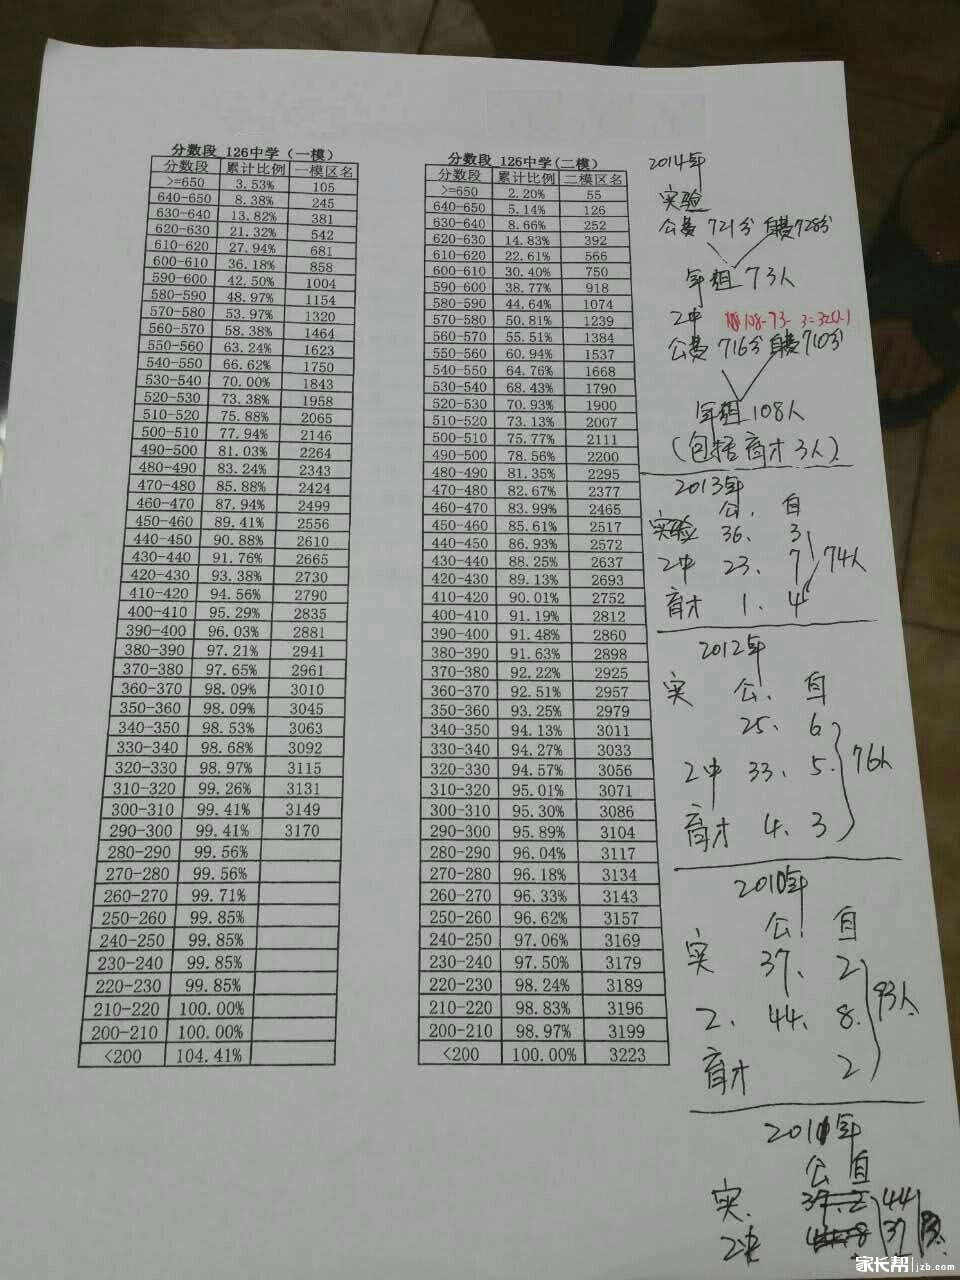 分数段_126中学（一模）
分数段 累计比例 一模区名
>=650 3.53% 105
640-650 8.38% 245
630-640 13.82% 381
620-630 21.32% 542
610-620 27.94% 681
600-610 36.18% 858
590-600 42.50% 1004
580-590 48.97% 1154
570-580 53.97% 1320
560-570 58.38% 1464
550-560 63.24% 1623
540-550 66.62% 1750
530-540 70.00% 1843
520-530 73.38% 1958
510-520 75.88% 2065
500-510 77.94% 2146
490-500 81.03% 2264
480-490 83.24% 2343
470-480 85.88% 2424
460-470 87.94% 2499
450-460 89.41% 2556
440-450 90.88% 2610
430-440 91.76% 2665
420-430 93.38% 2730
410-420 94.56% 2790
400-410 95.29% 2835
390-400 96.03% 2881
380-390 97.21% 2941
370-380 97.65% 2961
360-370 98.09% 3010
350-360 98.09% 3045
340-350 98.53% 3063
330-340 98.68% 3092
320-330 98.97% 3115
310-320 99.26% 3131
300-310 99.41% 3149
290-300 99.41% 3170
280-290 99.56%
270-280 99.56%
260-270 99.71%
250-260 99.85%
240-250 99.85%
230-240 99.85%
220-230 99.85%
210-220 100.00%
200-210 100.00%
<200 104.41%
分数段_126中学(二模)
分数段 累计比例 二模区名
>=650 2.20% 55
640-650 5.14% 126
630-640 8.66% 252
620-630 14.83% 392
610-620 22.61% 566
600-610 30.40% 750
590-600 38.77% 918
580-590 44.64% 1074
570-580 50.81% 1239
560-570 55.51% 1384
550-560 60.94% 1537
540-550 64.76% 1668
530-540 68.43% 1790
520-530 70.93% 1900
510-520 73.13% 2007
500-510 75.77% 2111
490-500 78.56% 2200
480-490 81.35% 2295
470-480 82.67% 2377
460-470 83.99% 2465
450-460 85.61% 2517
440-450 86.93% 2572
430-440 88.25% 2637
420-430 89.13% 2693
410-420 90.01% 2752
400-410 91.19% 2812
390-400 91.48% 2860
380-390 91.63% 2898
370-380 92.22% 2925
360-370 92.51% 2957
350-360 93.25% 2979
340-350 94.13% 3011
330-340 94.27% 3033
320-330 94.57% 3056
310-320 95.01% 3071
300-310 95.30% 3086
290-300 95.89% 3104
280-290 96.04% 3117
270-280 96.18% 3134
260-270 96.33% 3143
250-260 96.62% 3157
240-250 97.06% 3169
230-240 97.50% 3179
220-230 98.24% 3189
210-220 98.83% 3196
200-210 98.97% 3199
<200 100.00% 3223
2014年
实验
公费 721分 自费728分
年组 73人
2中
公费 716分 自费710分
年组 108人
(包括育才3人)
2013年
公. 自
实验 36. 3
2中 23. 7 74人
育才 1. 4
2012年
实 公. 自
25. 6
2中 33. 5. 76人
育才 4. 3
2010年
公. 自
实 37. 2
2. 44. 8. 93人
育才 2
2011年
公 自
实. 44
2中 37
家长帮 jzb.com